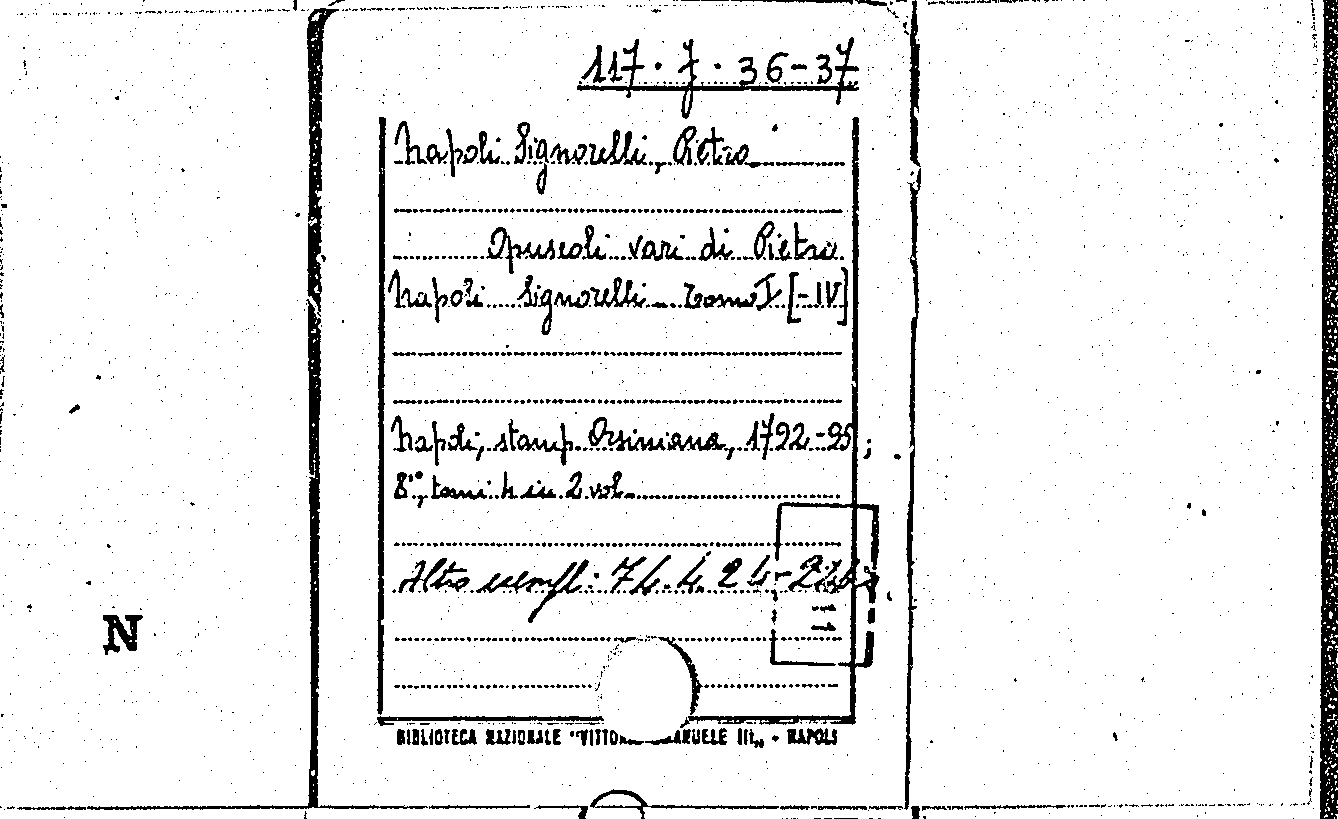 117. J. 36-37
Napoli Signorelli, Pietro
Opuscoli vari di Pietro
Napoli Signorelli. Tomo I [-IV]
Napoli, stamp. Orsiniana, 1792-95;
8°, tomi 4 in 2 vol.
Altro esempl: 74. 4. 24-
N
BIBLIOTECA NAZIONALE "VITTORIO EMANUELE III„ - NAPOLI